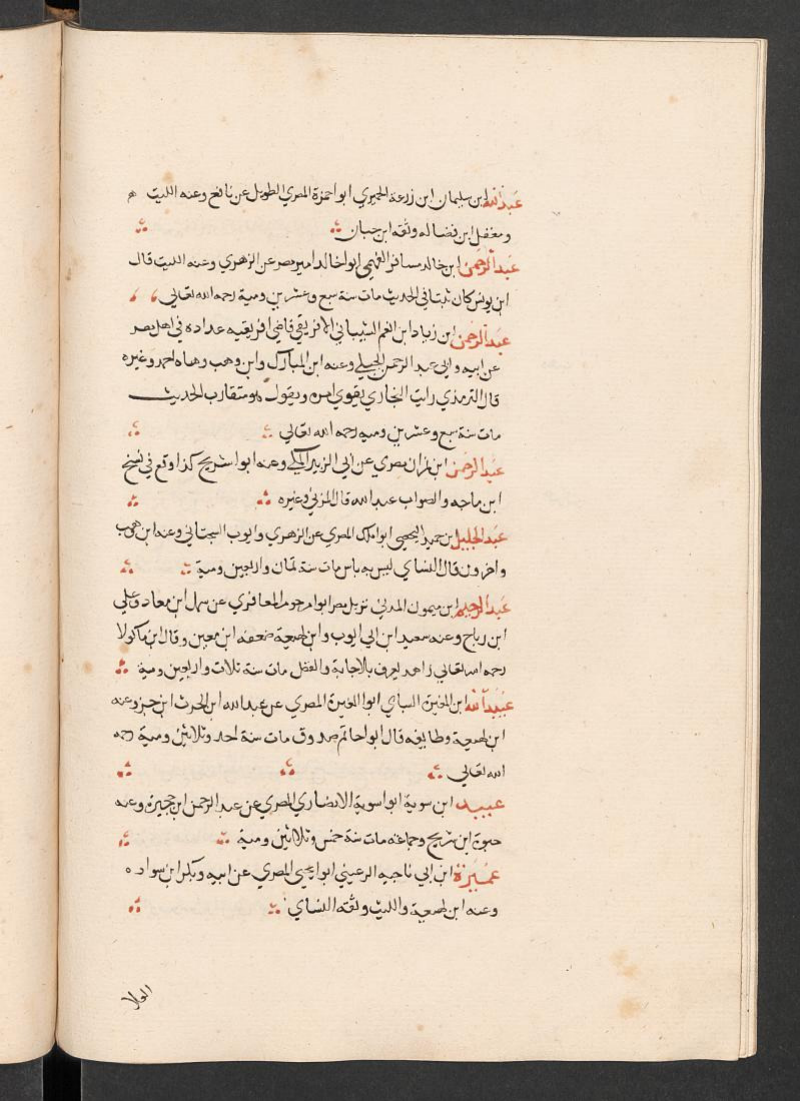 عبدالله ابن سليمان ابن زرعة الحميري ابوا حمزة المصري الطويل عن نافع وعنه الليث
ومفضل ابن فضاله وثقه ابن حبان
عبدالرحمن ابن خالد مسافر الفهمي ابوا خالد امير مصر عن الزهري وعنه الليث قال
ابن يونس كان ثبتا في الحديث مات سنة سبع وعشرين ومية رحمه الله تعالى
عبدالرحمن ابن زياد ابن انعم الشيباني الافريقي قاضي افريقيه عداده في اهل مصر
عن ابيه وابي عبد الرحمن الحبلي وعنه ابن المبارك وابن وهب وهاه احمد وغيره
قال الترمذي رايت البخاري يقوي امره ويقول هو متقارب الحديث
مات سنة سبع وعشرين وميه رحمه الله تعالى
عبد الرحمن ابن مصري عن ابي الزبير المكي وعنه ابوا شريح كذا وقع في نسخ
ابن ماجه والصواب عبد الله قال المزي وغيره
عبد الجليل ابن حميد اليحصبي ابوا ملك المصري عن الزهري وايوب السجستاني وعنه ابن وهب
واخرون قال النساي ليس به باس مات سنة ثمان واربعين ومية
عبدالرحيم ابن ميمون المدني نزيل مصر ابوا مرحوم المعافري عن سهل ابن معاذ وعلي
ابن رباح وعنه سعيد ابن ابي ايوب وابن لهيعة ضعفه ابن معين وقال ابن ماكولا
رحمه الله تعالى زاهد يعرف بالاجابة والفضل مات سنة ثلاث واربعين ومية
عبيدالله ابن المغيرة السباي ابوا المغيرة المصري عن عبد الله ابن الحرث ابن جزء وعنه
ابن لهيعة وطايفه قال ابوا حاتم صدوق مات سنة احد وثلاثين ومية رحمه
الله تعالى
عبيد ابن سوية ابوا سوية الانصاري المصري عن عبد الرحمن ابن حجيرة وعنه
حيوة ابن شريح وجماعه مات سنة خمس وثلاثين ومية
عميرة ابن ابي ناجيه الرعيني ابوا يحيى المصري عن ابيه وبكر ابن سواده
وعنه ابن لهيعة والليث وثقه النساي
العلا